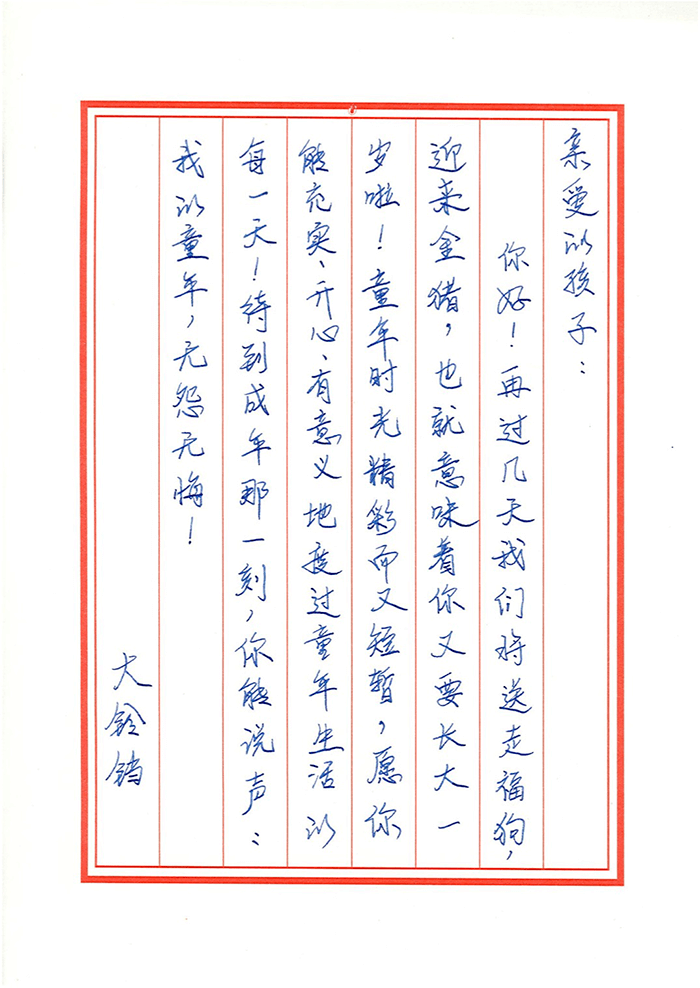 亲爱的孩子：
你好！再过几天我们将送走福狗，
迎来金猪，也就意味着你又要长大一
岁啦！童年时光精彩而又短暂，愿你
能充实、开心、有意义地度过童年生活的
每一天！待到成年那一刻，你能说声：
我的童年，无怨无悔！
大铃铛